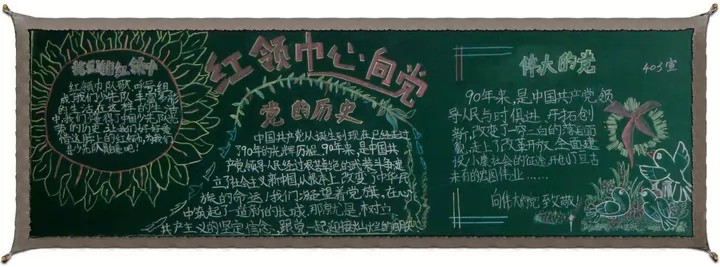 红领巾心向党
我是红领巾
红领巾队歌,呼号,组
成了我们少先队丰富多彩
的生活,在这
中,我们懂得了中国少先队光
荣的历史,让我们好好爱
惜这胸上的红领巾,为我们
是少先队员自豪吧!
党的历史
中国共产党从诞生到现在已经走过
了90年的光辉历程,90年来,是中国共
产党领导人民经过艰苦的武装斗争建
立了社会主义新中国,从根本上改变了中华民
族的命运!我们凝望着党旗,在心
中筑起了崭新的长城,那就是树立
共产主义的坚定信念,跟党一起迎接灿烂的明天
伟大的党
403宣
90年来,是中国共产党领
导人民与时俱进,开拓创
新,改变了穷二白的落后面
貌,走上了改革开放,全面建
设小康社会的征途,开创了亘古
未有的宏图伟业……
向伟大的党致敬!